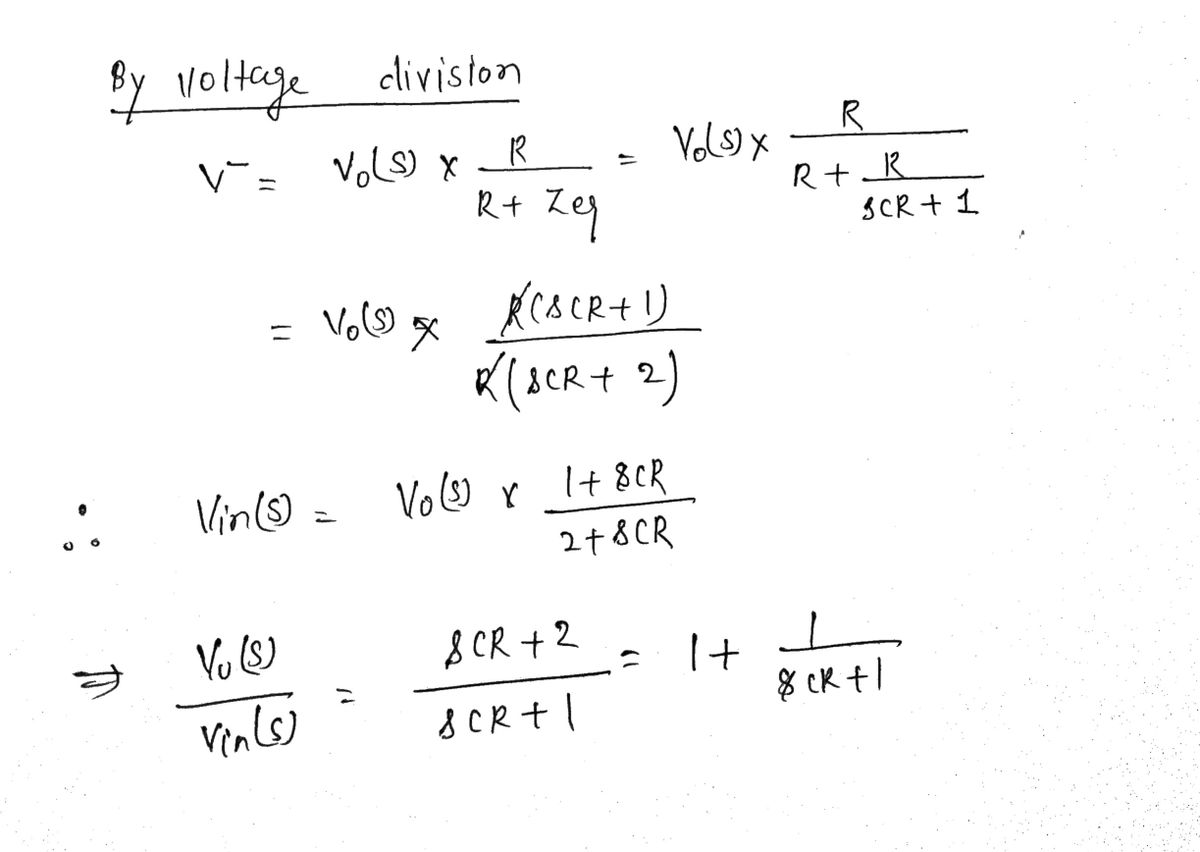 By voltage division
V⁻ = Vo(s) × R / (R + Zeq) = Vo(s) × R / (R + R / (sCR + 1))
= Vo(s) × R(sCR + 1) / R(sCR + 2)
∴ Vin(s) = Vo(s) × (1 + sCR) / (2 + sCR)
⇒ Vo(s) / Vin(s) = (sCR + 2) / (sCR + 1) = 1 + 1 / (sCR + 1)